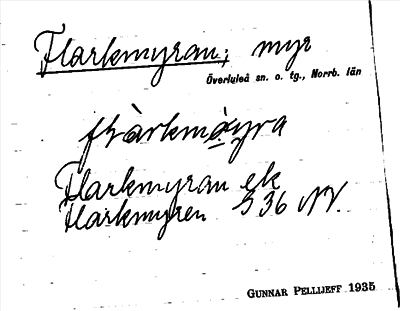 Flarkmyran; myr
Överluleå sn. o. tg., Norrb. län
flàrkmỳra
Flarkmyran ek
Flarkmyren 536 NV.
GUNNAR PELLIJEFF 1935